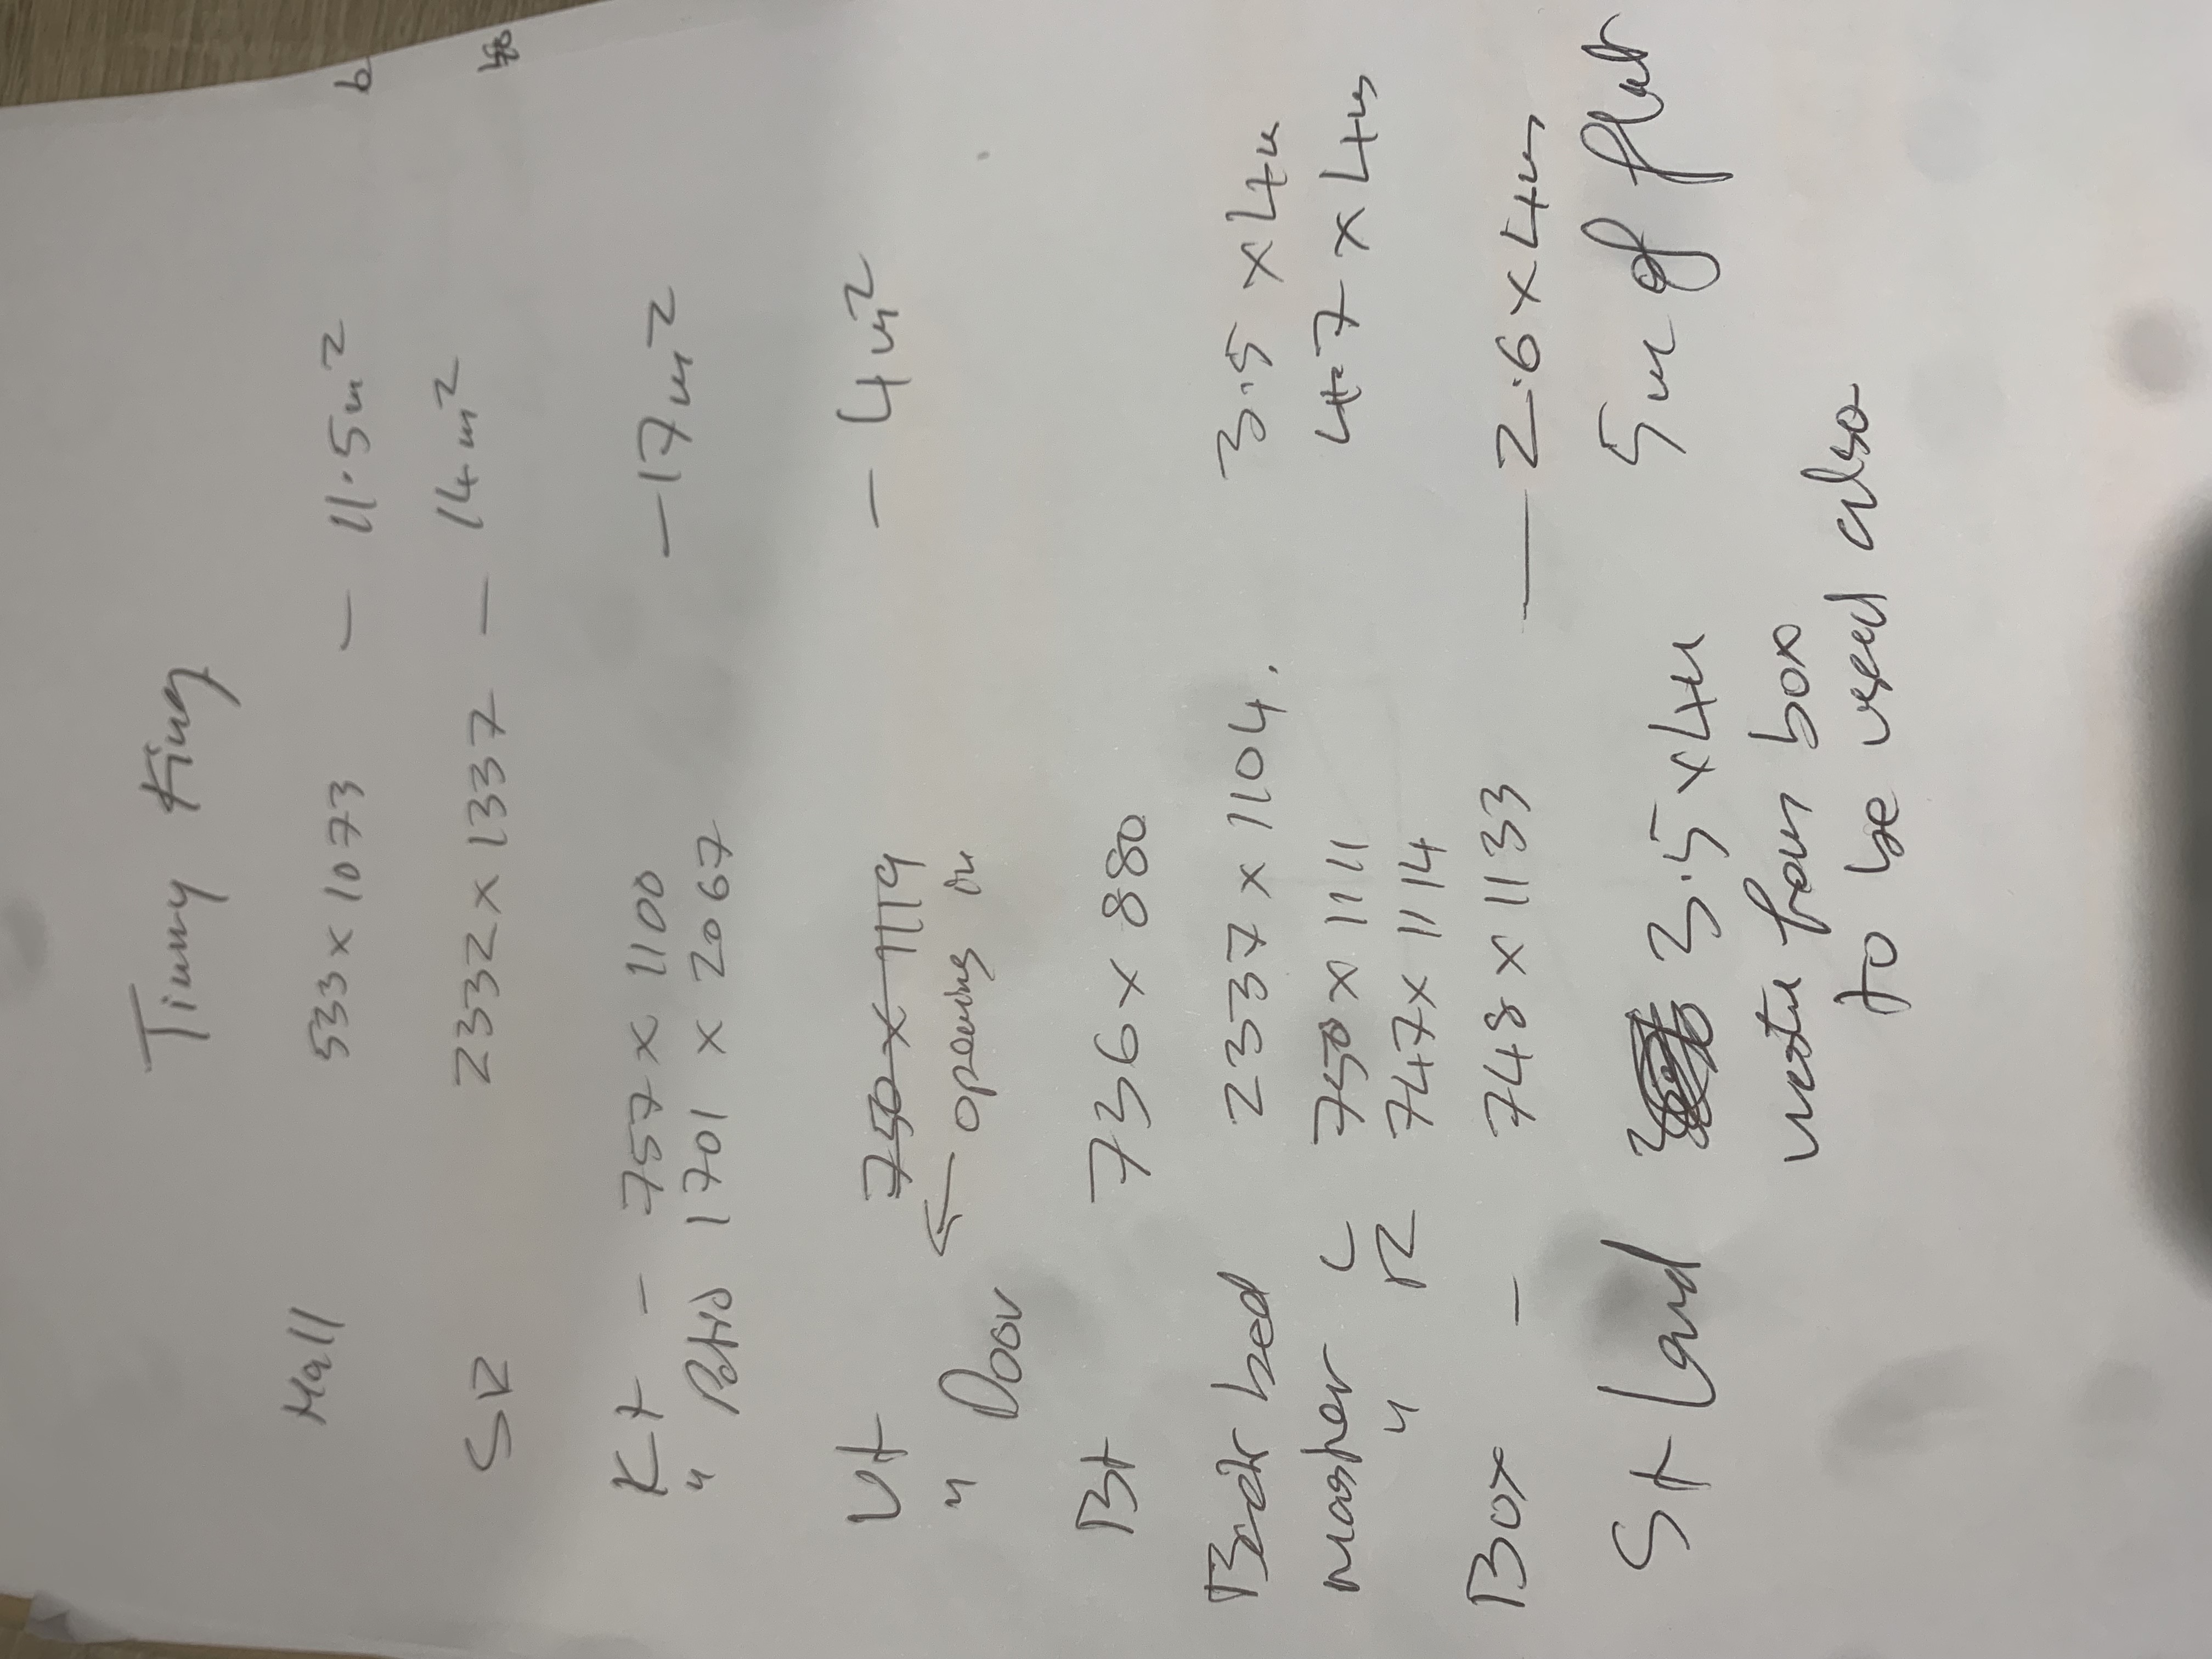 Timmy King
Hall 533 x 1073 - 11.5m² 6
SR 2332 x 1337 - 14m²
Kt - 757 x 1100 - 17m²
" Patio 1701 x 2067
Ut 750 x 1119 - 4m²
" Door ← opening in
Bt 736 x 880
Back bed 2337 x 1104. 3.5 x 4m
master L 750 x 1111 4.7 x 4m
" R 747 x 1114
Box - 748 x 1133 - 2.6 x 4m
St Land 3.5 x 4m 5m of flat
waste from box
to be used also